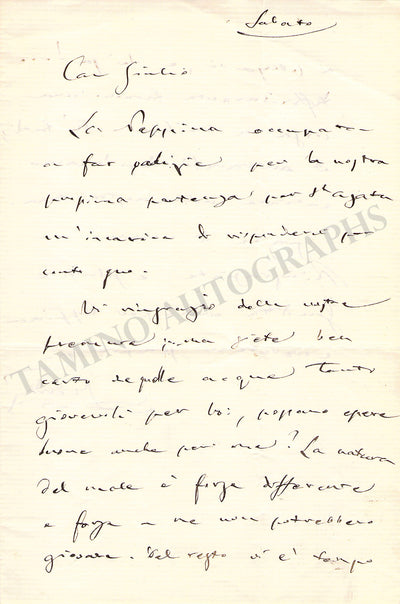 Sabato
Car Giulio
La Peppina occupata
a far pulizie per la nostra
prossima partenza per St Agata
m'incarica di rispondere per
conto suo.
Vi ringrazio della vostra
premura ma siete ben
certo che quelle acque tanto
giovevoli per voi, possano essere
buone anche per me? La natura
del male è forse differente
e forse a me non potrebbero
giovare. Del resto vi è tempo
TAMINO AUTOGRAPHS